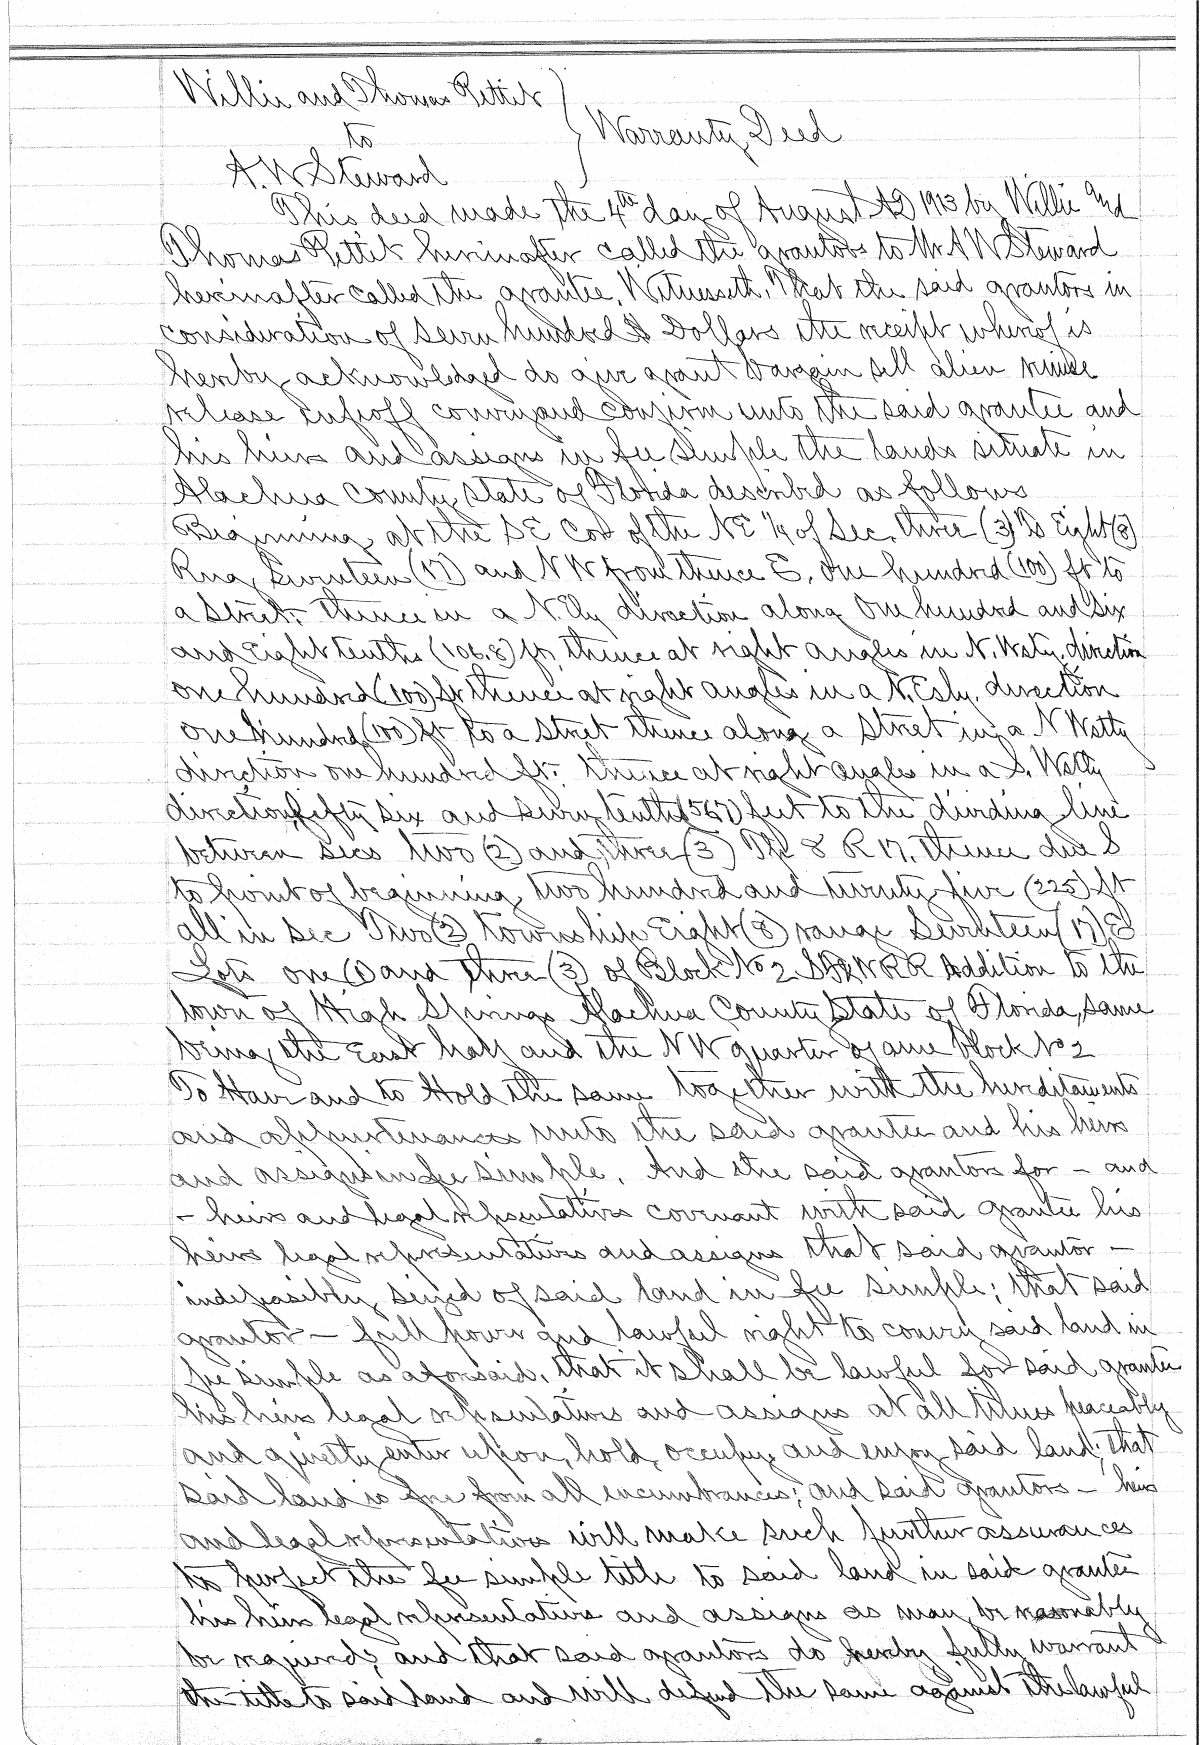 Willie and Thomas Pettit
to
Warranty Deed
A. W Steward
This deed made the 4th day of August AD 1913 by Willie and
Thomas Pettit hereinafter called the grantors to Mr A W Steward
hereinafter called the grantee, Witnesseth, That the said grantors in
consideration of Seven hundred $ Dollars the receipt whereof is
hereby acknowledged do give grant bargain sell alien remise
release enfeoff convey and confirm unto the said grantee and
his heirs and assigns in fee simple the lands situate in
Alachua County State of Florida described as follows
Beginning at the SE Cor of the NE ¼ of Sec. three (3) Ts Eight (8)
Rng, Seventeen (17) and N W from thence E, One hundred (100) ft to
a street, thence in a N.Ely direction along One hundred and six
and Eight tenths (106.8) ft, thence at right angles in N. Wstly, direction
one hundred (100) ft thence at right angles in a N. Esly, direction
one hundred (100) ft to a street thence along a street in a N Wstly
direction one hundred ft. thence at right angles in a S. Wstly
direction, fifty six and seven tenths (56.7) feet to the dividing line
between secs two (2) and three (3) Tp 8 R 17, thence due S
to point of beginning two hundred and twenty five (225) ft
all in sec Two (2) township Eight (8) range Seventeen (17) E
Lots one (1) and three (3) of Block No 2 R R Addition to the
town of High Springs Alachua County State of Florida, same
being the East half and the N W quarter of ame block No 2
To Have and to Hold the same together with the hereditaments
and appurtenances unto the said grantee and his heirs
and assigns in fee simple. And the said grantors for – and
– heirs and legal representatives covenant with said grantee his
heirs legal representatives and assigns that said grantor –
indefeasibly seized of said land in fee simple; that said
grantor – full power and lawful right to convey said land in
fee simple as aforesaid, that it shall be lawful for said grantee
his heirs legal representatives and assigns at all times peaceably
and quietly enter upon, hold, occupy and enjoy said land; that
said land is free from all encumbrances; and said grantors – heirs
and legal representatives will make such further assurances
to perfect the fee simple title to said land in said grantee
his heirs legal representatives and assigns as may be reasonably
be required; and that said grantors do hereby fully warrant
the title to said land and will defend the same against the lawful